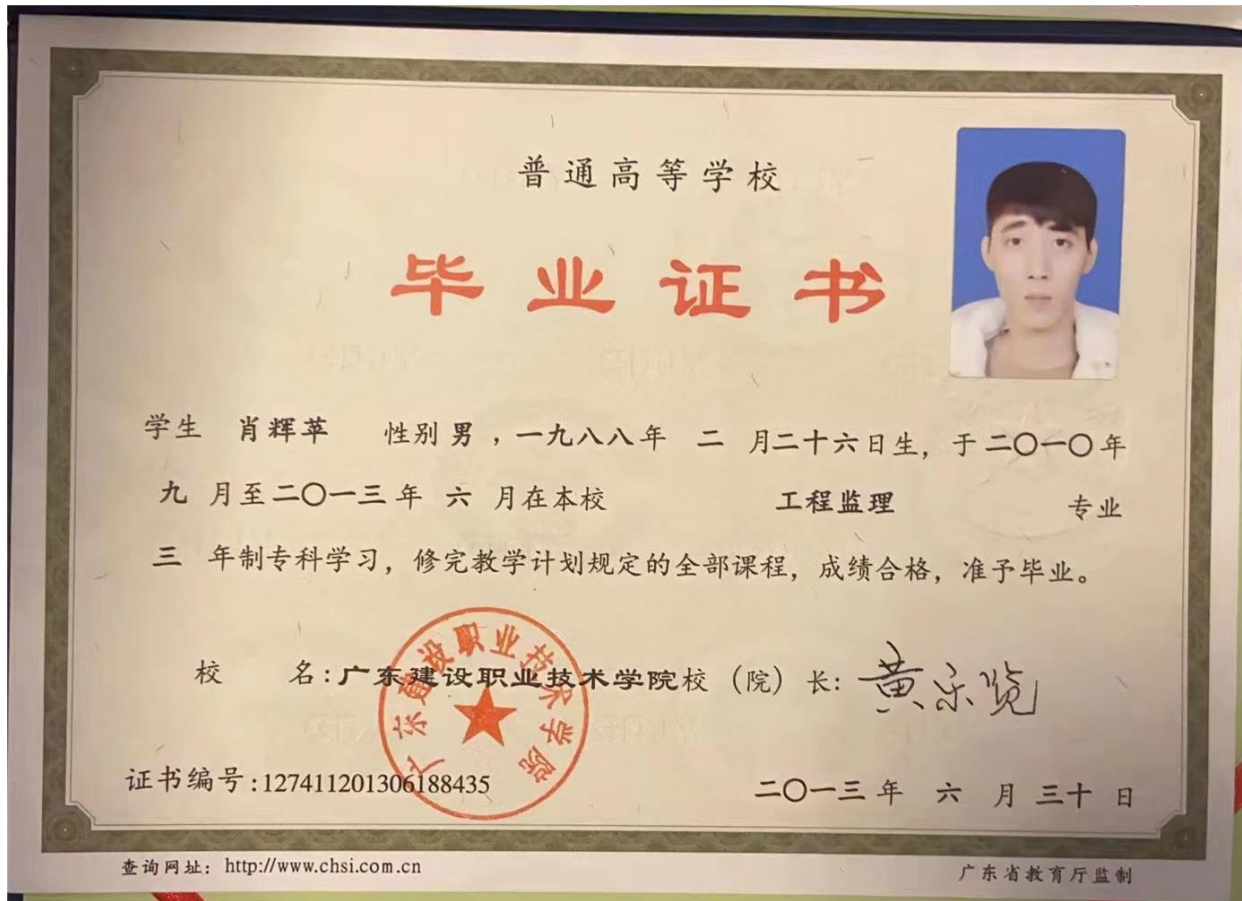 普通高等学校
毕业证书
学生 肖辉苹 性别 男 ，一九八八年 二 月二十六日生，于二〇一〇年
九 月至二〇一三年 六 月在本校 工程监理 专业
三 年制专科学习，修完教学计划规定的全部课程，成绩合格，准予毕业。
校 名:广东建设职业技术学院校（院）长: 黄乐览
广东建设职业技术学院
证书编号:127411201306188435
二〇一三年 六 月 三十 日
查询网址：http://www.chsi.com.cn
广东省教育厅监制